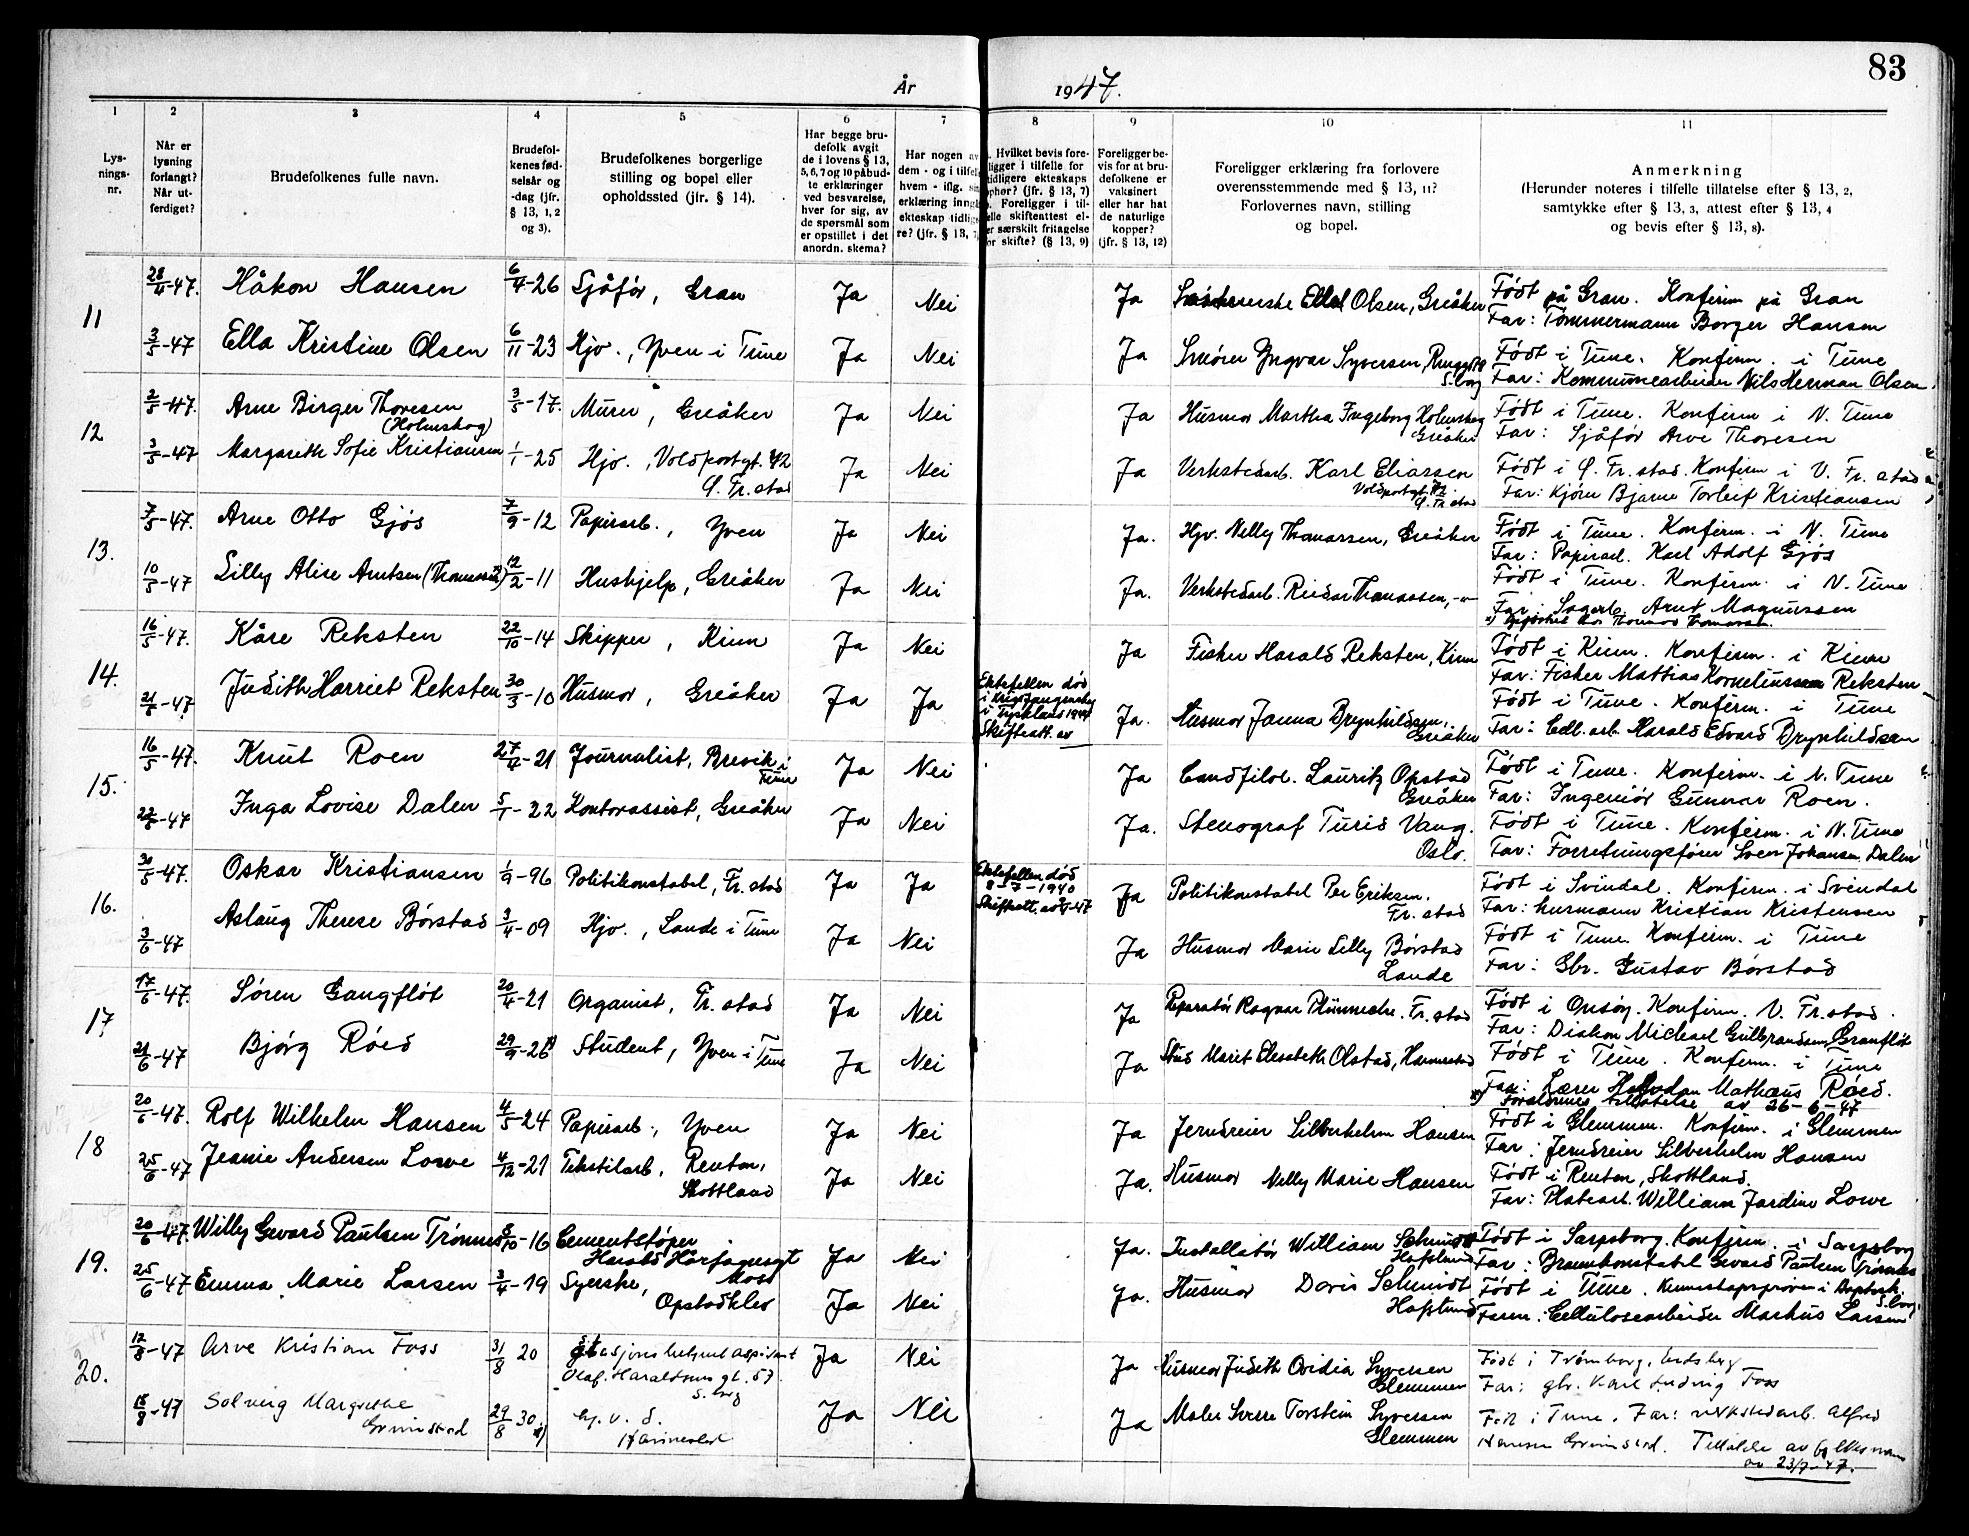 83
År 1947.
1 2 3 4 5 6 7 8 9 10 11
Lys-
nings-
nr.
Når er
lysning
forlangt?
Når ut-
ferdiget?
Brudefolkenes fulle navn.
Brudefol-
kenes fød-
selsår og
-dag (jfr.
§ 13, 1, 2
og 3).
Brudefolkenes borgerlige
stilling og bopel eller
opholdssted (jfr. § 14).
Har begge bru-
defolk avgit
de i lovens § 13,
5, 6, 7 og 10 påbud-
te erklæringer
ved besvarelse,
hver for sig, av
de spørsmål som
er opstillet i det
anordn. skema?
Har nogen av
dem - og i tilfelle
hvem - iflg. sin
erklæring inngå
ekteskap tidlige
re? (jfr. § 13, 7
Hvilket bevis fore-
ligger i tilfelle for
tidligere ekteskaps
ophør? (jfr. § 13, 7)
Foreligger i til-
elle skifteattest el-
er særskilt fritagelse
or skifte? (§ 13, 9)
Foreligger be-
vis for at bru-
defolkene er
vaksinert
eller har hat
de naturlige
kopper?
(jfr. § 13, 12)
Foreligger erklæring fra forlovere
overensstemmende med § 13, 11?
Forlovernes navn, stilling
og bopel.
Anmerkning
(Herunder noteres i tilfelle tillatelse efter § 13, 2,
samtykke efter § 13, 3, attest efter § 13, 4
og bevis efter § 13, 8).
11
28/4-47. Håkon Hansen 6/4-26 Sjåfør, Gran Ja Nei Ja Ella Olsen, Greåker Født på Gran. Konfirm på Gran
Far: Tømmermann Borger Hansen
3/5-47 Ella Kristine Olsen 6/11-23 Hjv., Yven i Tune Ja Nei Ja Yngvar Syversen, S.borg Født i Tune. Konfirm. i Tune
Far: Kommunearbeider Nils Herman Olsen.
12
2/5-47. Arne Birger Thoresen (Holmskog) 3/5-17. Murer, Greåker Ja Nei Ja Husmor Martha Ingeborg Holmskog Greåker Født i Tune. Konfirm i N. Tune
Far: Sjåfør Arve Thoresen
3/5-47 Margarith Sofie Kristiansen 1/1-25 Hjv., Voldportgt. 42 Fr.stad Ja Nei Ja Verkstedarb. Karl Eliassen Voldportgt. Fr.stad Født i Fr.stad. Konfirm i V. Fr.stad
Far: Kjører Bjarne Torleif Kristiansen
13.
7/5-47. Arne Otto Gjøs 7/9-12 Papirarb., Yven Ja Nei Ja. Hjv. Nelly Thomassen, Greåker Født i Tune. Konfirm. i N. Tune
Far: Papirarb. Karl Adolf Gjøs
10/5-47 Lilly Alise Arntsen (Thomassen) 12/2-11 Hushjelp, Greåker Ja Nei Ja. Verkstedarb. Reidar Thomassen, -"- Født i Tune. Konfirm. i N. Tune
Far: Sagarb. Arnt Magnussen
14.
16/5-47. Kåre Reksten 22/10-14 Skipper, Kinn Ja Nei Ja Fisker Harald Reksten, Kinn Født i Kinn. Konfirm. i Kinn
Far: Fisker Mattias Korneliussen Reksten
21/5-47 Judith Harriet Reksten 30/3-10 Husmor, Greåker Ja Ja Ektefellen død
i krigsfangenskap
i Tyskland 1944
Skifteatt. av
Ja. Husmor Janna Brynhildsen, Greåker Født i Tune. Konfirm. i Tune
Far: Cell. arb. Harald Edvard Brynhildsen
15.
16/5-47. Knut Roen 27/4-21 Journalist, Brevik i Tune Ja Nei Ja Cand filol. Lauritz Opstad Greåker Født i Tune. Konfirm. i N. Tune
Far: Ingeniør Gunnar Roen.
22/5-47 Inga Lovise Dalen 5/1-22 Kontorassist, Greåker Ja Nei Ja. Stenograf Turid Vang. Oslo. Født i Tune. Konfirm. i N. Tune
Far: Forretningsfører Sven Johansen Dalen
16.
30/5-47. Oskar Kristiansen 1/9-96 Politikonstabel, Fr.stad Ja Ja Ektefellen død
8-7-1940
Ja Politikonstabel Per Eriksen. Fr.stad Født i Svindal. Konfirm. i Svindal
Far: husmann Kristian Kristensen
3/6-47 Aslaug Therese Børstad 3/4-09 Hjv., Lande i Tune Ja Nei Ja Husmor Marie Lilly Børstad Lande Født i Tune. Konfirm. i Tune
Far: Gbr. Gustav Børstad
17.
17/6-47. Søren Gangfløt 20/4-21 Organist, Fr.stad Ja Nei Ja Reparatør Ragnar Fr.stad Født i Onsøy. Konfirm. V. Fr.stad.
Far: Diakon Michael Gulbrandsen Grønfløt
21/6-47 Bjørg Røed 29/9-26 Student, Yven i Tune Ja Nei Ja Stud Marit Elisabeth Olstad, Født i Tune. Konfirm. i Tune
Far: Lærer Halvdan Mathæus Røed.
x) Foreldrenes tillatelse av 26-6-47
18
20/6-47. Rolf Wilhelm Hansen 4/5-24 Papirarb., Yven Ja Nei Ja Jerndreier Silberhelm Hansen Født i Glemmen. Konfirm. i Glemmen
Far: Jerndreier Silberhelm Hansen
25/6-47 Jeanie Andersen Lowe 4/12-21 Tekstilarb, Renton, Skottland Ja Nei Ja. Husmor Nelly Marie Hansen Født i Renton, Skottland.
Far: Platearb. William Jardine Lowe
19.
20/6-47. Willy Gevard Paulsen Trømnes 8/10-16 Cementstøper Harald Hårfagresgt Moss Ja Nei Ja. Installatør William Schmidt Hafslund Født i Sarpsborg. Konfirm. i Sarpsborg
Far: Brannkonstabel Gevard Paulsen Trømnes
25/6-47 Emma Marie Larsen 3/4-19 Syerske, Opstadklev Ja Nei Ja. Husmor Doris Schmidt Hafslund Født i Tune. Kunnskapsprøven i S.borg.
Faren: Cellulosearbeider Markus Larsen
20.
12/8-47 Arve Kristian Foss 31/8 20 Stasjonsbetjent aspirant
Olaf Haraldsons gt. 57 S.borg Ja Nei Ja Husmor Judith Ovidia Syversen Glemmen Født i Trømborg, Eidsberg
Far: gbr. Karl Ludvig Foss
18/8-47 Solveig Margrethe Grimstad 29/8 30 x) Hannestad Ja Nei Ja Maler Sverre Torstein Syversen Glemmen Født i Tune. Far: verkstedarb. Alfred
Hansen Grimstad. Tillatelse av fylkesmann
av 23/7-47.